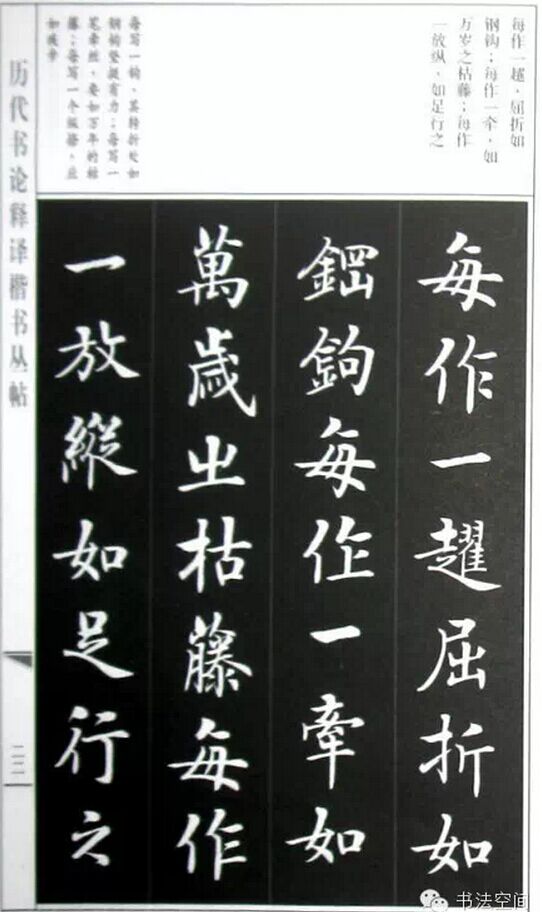 每作一趯、屈折如
钢钩；每作一牵、如
万岁之枯藤；每作
一放纵、如足行之
每写一钩、其转折处如
钢钩坚挺有力；每写一
藤；每写一个
每作一趯屈折如
鋼鉤每作一牽如
萬歲之枯藤每作
一放縱如足行之
历代书论释译楷书丛帖
二二
书法空间